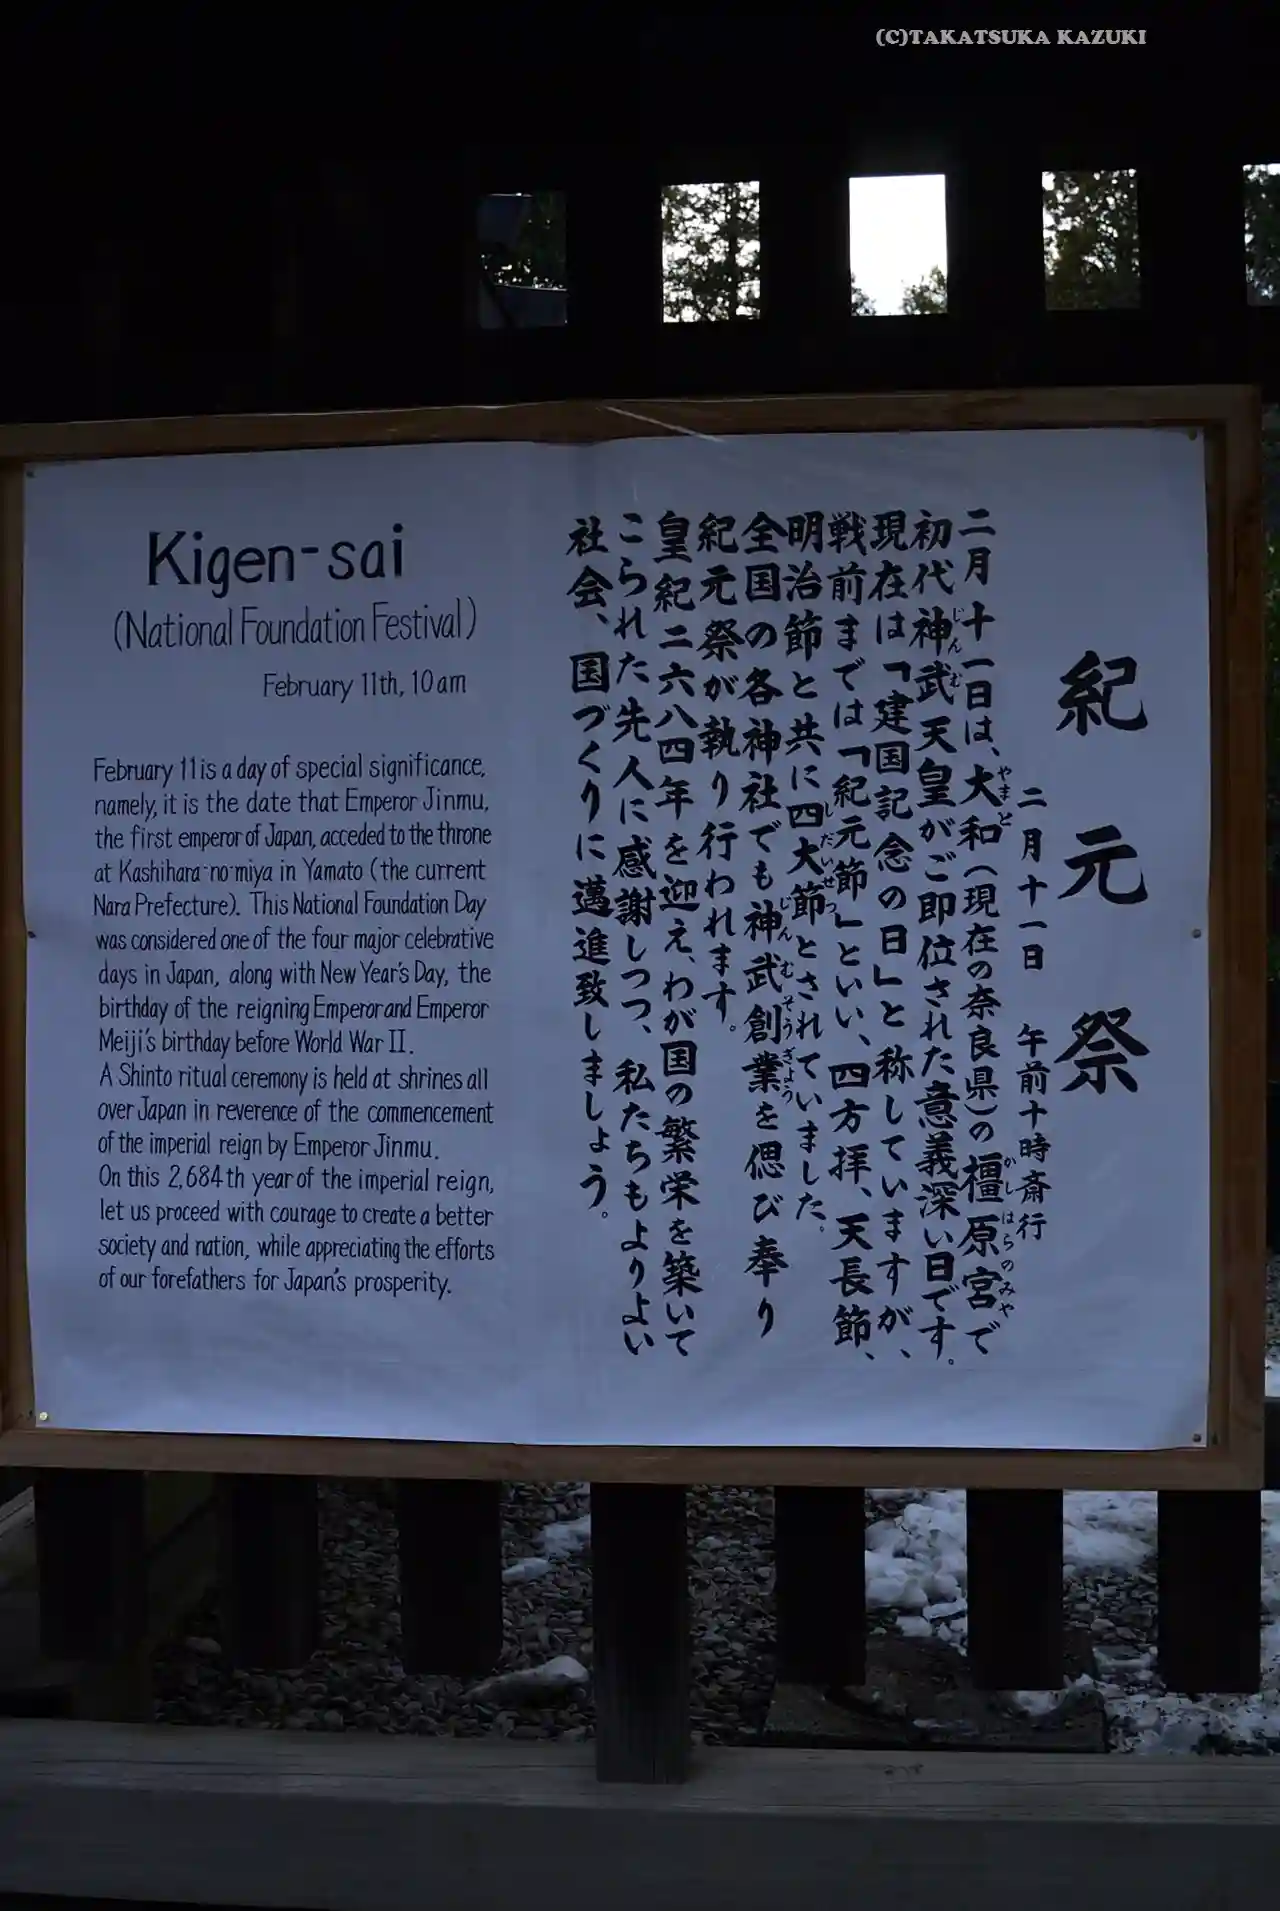 (C)TAKATSUKA KAZUKI
Kigen-sai
(National Foundation Festival)
February 11th, 10am
February 11 is a day of special significance,
namely, it is the date that Emperor Jinmu,
the first emperor of Japan, acceded to the throne
at Kashihara-no-miya in Yamato (the current
Nara Prefecture). This National Foundation Day
was considered one of the four major celebrative
days in Japan, along with New Year's Day, the
birthday of the reigning Emperor and Emperor
Meiji's birthday before World War II.
A Shinto ritual ceremony is held at shrines all
over Japan in reverence of the commencement
of the imperial reign by Emperor Jinmu.
On this 2,684th year of the imperial reign,
let us proceed with courage to create a better
society and nation, while appreciating the efforts
of our forefathers for Japan's prosperity.
紀元祭
二月十一日 午前十時斎行
二月十一日は、大和(現在の奈良県)の橿原宮で
やまと
かしはらのみや
初代神武天皇がご即位された意義深い日です。
じんむ
現在は「建国記念の日」と称していますが、
戦前までは「紀元節」といい、四方拝、天長節、
明治節と共に四大節とされていました。
しだいせつ
全国の各神社でも神武創業を偲び奉り
じんむそうぎょう
紀元祭が執り行われます。
皇紀二六八四年を迎え、わが国の繁栄を築いて
こられた先人に感謝しつつ、私たちもよりよい
社会、国づくりに邁進致しましょう。